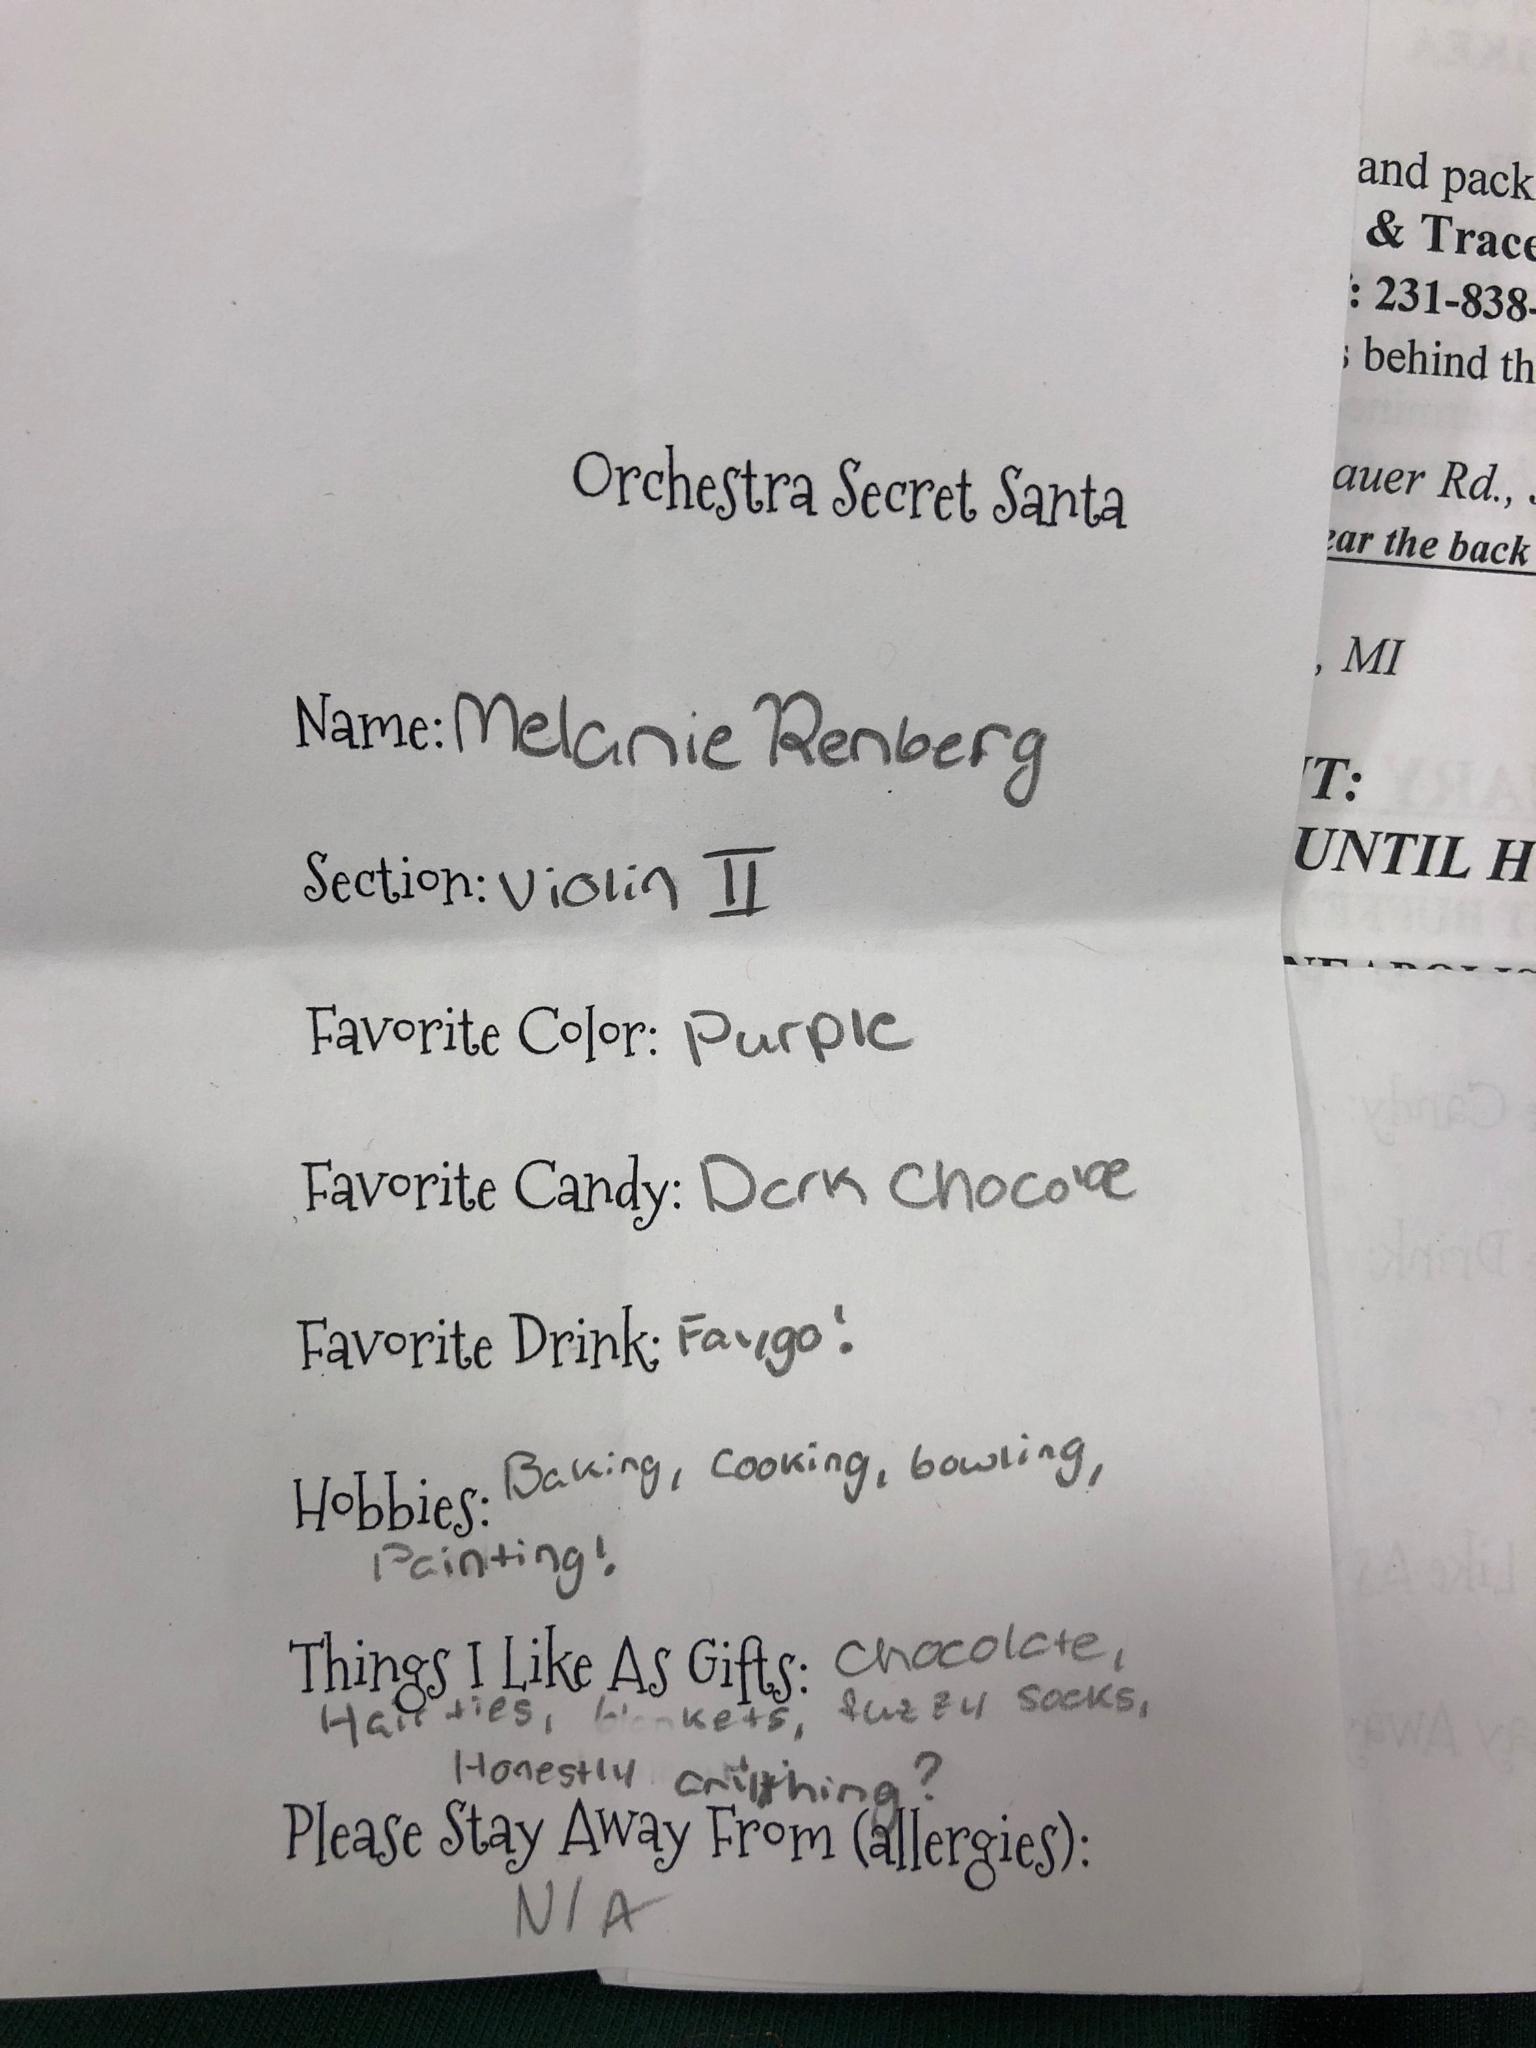 Orchestra Secret Santa
Name: Melanie Renberg
Section: Violin II
Favorite Color: Purple
Favorite Candy: Dark Chocolate
Favorite Drink: Faygo!
Hobbies: Baking, Cooking, bowling,
Painting!
Things I Like As Gifts: Chocolate,
Hair ties, blankets, fuzzy socks,
Honestly anything?
Please Stay Away From (allergies):
N/A
and pack
& Trace
: 231-838-
behind th
auer Rd.,
ear the back
, MI
T:
UNTIL H